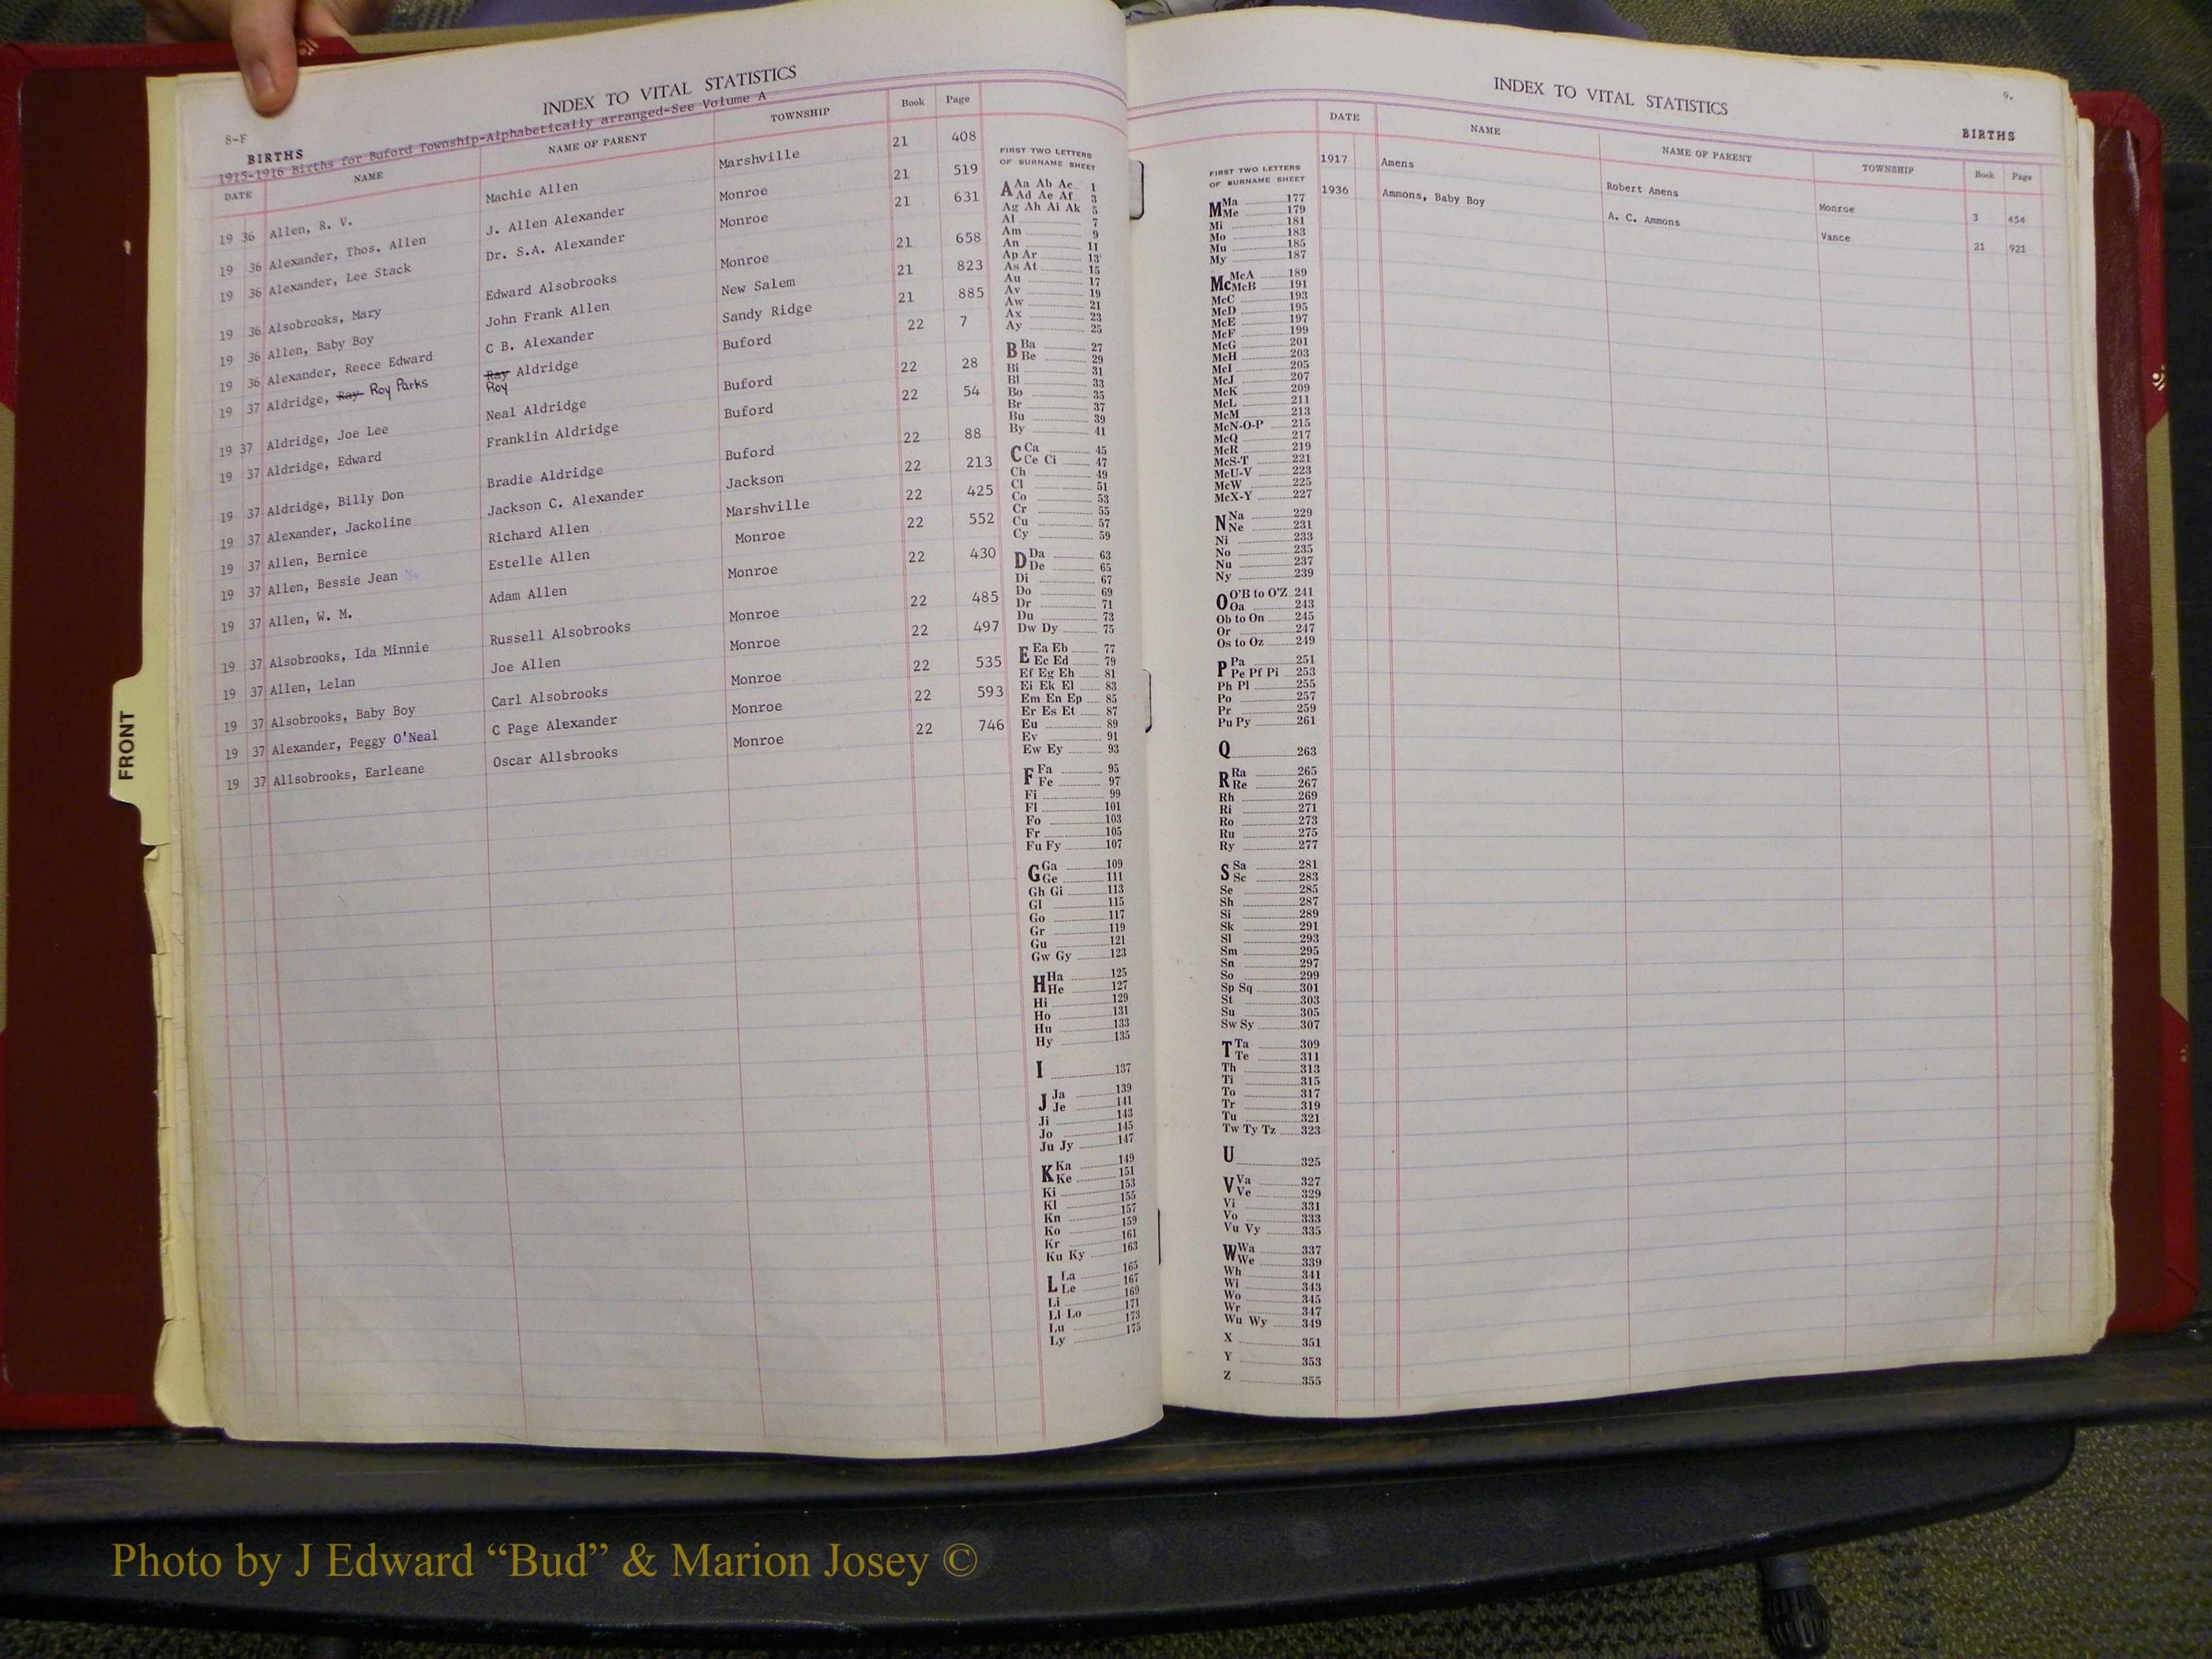 INDEX TO VITAL STATISTICS
8-F
BIRTHS
1915-1916 Births for Buford Township-Alphabetically arranged-See Volume A
DATE NAME NAME OF PARENT TOWNSHIP Book Page
19 36 Allen, R. V. Machie Allen Marshville 21 408
19 36 Alexander, Thos. Allen J. Allen Alexander Monroe 21 519
19 36 Alexander, Lee Stack Dr. S.A. Alexander Monroe 21 631
19 36 Alsobrooks, Mary Edward Alsobrooks Monroe 21 658
19 36 Allen, Baby Boy John Frank Allen New Salem 21 823
19 36 Alexander, Reece Edward C B. Alexander Sandy Ridge 21 885
19 37 Aldridge, Ray Roy Parks Ray Aldridge Buford 22 7
Roy
19 37 Aldridge, Joe Lee Neal Aldridge Buford 22 28
19 37 Aldridge, Edward Franklin Aldridge Buford 22 54
19 37 Aldridge, Billy Don Bradie Aldridge Buford 22 88
19 37 Alexander, Jackoline Jackson C. Alexander Jackson 22 213
19 37 Allen, Bernice Richard Allen Marshville 22 425
19 37 Allen, Bessie Jean Estelle Allen Monroe 22 552
19 37 Allen, W. M. Adam Allen Monroe 22 430
19 37 Alsobrooks, Ida Minnie Russell Alsobrooks Monroe 22 485
19 37 Allen, Lelan Joe Allen Monroe 22 497
19 37 Alsobrooks, Baby Boy Carl Alsobrooks Monroe 22 535
19 37 Alexander, Peggy O'Neal C Page Alexander Monroe 22 593
19 37 Allsobrooks, Earleane Oscar Allsbrooks Monroe 22 746
FRONT
FIRST TWO LETTERS
OF SURNAME SHEET
A Aa Ab Ac 1
Ad Ae Af 3
Ag Ah Ai Ak 5
Al 7
Am 9
An 11
Ap Ar 13
As At 15
Au 17
Av 19
Aw 21
Ax 23
Ay 25
B Ba 27
Be 29
Bi 31
Bl 33
Bo 35
Br 37
Bu 39
By 41
C Ca 45
Ce Ci 47
Ch 49
Cl 51
Co 53
Cr 55
Cu 57
Cy 59
D Da 63
De 65
Di 67
Do 69
Dr 71
Du 73
Dw Dy 75
E Ea Eb 77
Ec Ed 79
Ef Eg Eh 81
Ei Ek El 83
Em En Ep 85
Er Es Et 87
Eu 89
Ev 91
Ew Ey 93
F Fa 95
Fe 97
Fi 99
Fl 101
Fo 103
Fr 105
Fu Fy 107
G Ga 109
Ge 111
Gh Gi 113
Gl 115
Go 117
Gr 119
Gu 121
Gw Gy 123
H Ha 125
He 127
Hi 129
Ho 131
Hu 133
Hy 135
I 137
J Ja 139
Je 141
Ji 143
Jo 145
Ju Jy 147
K Ka 149
Ke 151
Ki 153
Kl 155
Kn 157
Ko 159
Kr 161
Ku Ky 163
L La 165
Le 167
Li 169
Ll Lo 171
Lu 173
Ly 175
INDEX TO VITAL STATISTICS
9.
BIRTHS
DATE NAME NAME OF PARENT TOWNSHIP Book Page
1917 Amens Robert Amens Monroe 3 454
1936 Ammons, Baby Boy A. C. Ammons Vance 21 921
FIRST TWO LETTERS
OF SURNAME SHEET
M Ma 177
Me 179
Mi 181
Mo 183
Mu 185
My 187
Mc McA 189
McB 191
McC 193
McD 195
McE 197
McF 199
McG 201
McH 203
McI 205
McJ 207
McK 209
McL 211
McM 213
McN-O-P 215
McQ 217
McR 219
McS-T 221
McU-V 223
McW 225
McX-Y 227
N Na 229
Ne 231
Ni 233
No 235
Nu 237
Ny 239
O O'B to O'Z 241
Oa 243
Ob to On 245
Or 247
Os to Oz 249
P Pa 251
Pe Pf Pi 253
Ph Pl 255
Po 257
Pr 259
Pu Py 261
Q 263
R Ra 265
Re 267
Rh 269
Ri 271
Ro 273
Ru 275
Ry 277
S Sa 281
Sc 283
Se 285
Sh 287
Si 289
Sk 291
Sl 293
Sm 295
Sn 297
So 299
Sp Sq 301
St 303
Su 305
Sw Sy 307
T Ta 309
Te 311
Th 313
Ti 315
To 317
Tr 319
Tu 321
Tw Ty Tz 323
U 325
V Va 327
Ve 329
Vi 331
Vo 333
Vu Vy 335
W Wa 337
We 339
Wh 341
Wi 343
Wo 345
Wr 347
Wu Wy 349
X 351
Y 353
Z 355
Photo by J Edward “Bud” & Marion Josey ©